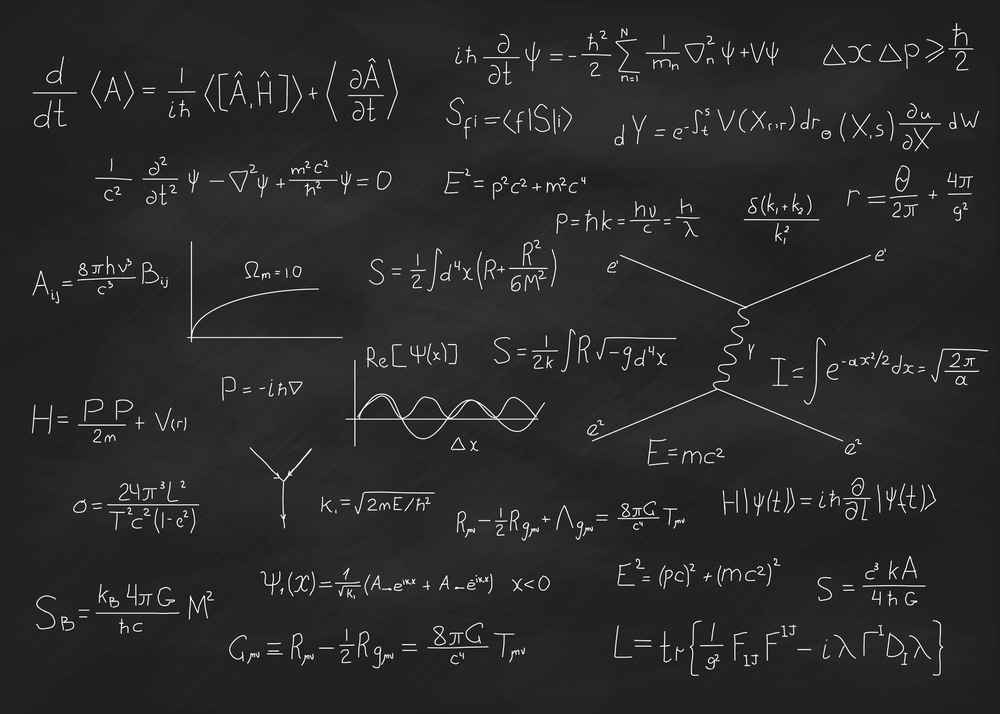 d/dt ⟨A⟩ = 1/iħ ⟨[Â,Ĥ]⟩ + ⟨∂Â/∂t⟩
iħ ∂/∂t ψ = -ħ²/2 ∑ₙ₌₁ᴺ 1/mₙ ∇ₙ² ψ + Vψ
Δx Δp ⩾ ħ/2
S_fi = ⟨f|S|i⟩
dY = e^-∫ₜˢ V(X(τ),τ) dτ σ (X,s) ∂u/∂X dW
1/c² ∂²/∂t² ψ - ∇²ψ + m²c²/ħ² ψ = 0
E² = p²c² + m²c⁴
p = ħk = hν/c = h/λ
δ(k₁+k₂)/k₁²
r = Θ/2π + 4π/g²
A_ij = 8πhν³/c³ B_ij
Ωₘ = 1.0
S = 1/2 ∫d⁴x (R + R²/6M²)
e'
e'
Re[Ψ(x)]
S = 1/2k ∫R √-g d⁴x
γ
I = ∫e^-αx²/2 dx = √2π/α
P = -iħ∇
H = P P/2m + V(r)
Δx
e²
e²
E = mc²
σ = 24π³L²/T²c²(1-e²)
k₁ = √2mE/ħ²
R_μν - 1/2 R g_μν + Λ g_μν = 8πG/c⁴ T_μν
H|ψ(t)⟩ = iħ ∂/∂t |ψ(t)⟩
Ψ₁(x) = 1/√k₁ (A→e^ik₁x + A←e^ik₁x) x<0
E² = (pc)² + (mc²)²
S = c³kA/4ħG
S_B = k_B 4πG/ħc M²
G_μν ≡ R_μν - 1/2 R g_μν = 8πG/c⁴ T_μν
L = tr{1/g² F_IJ F^IJ - iλ Γ^I D_I λ}